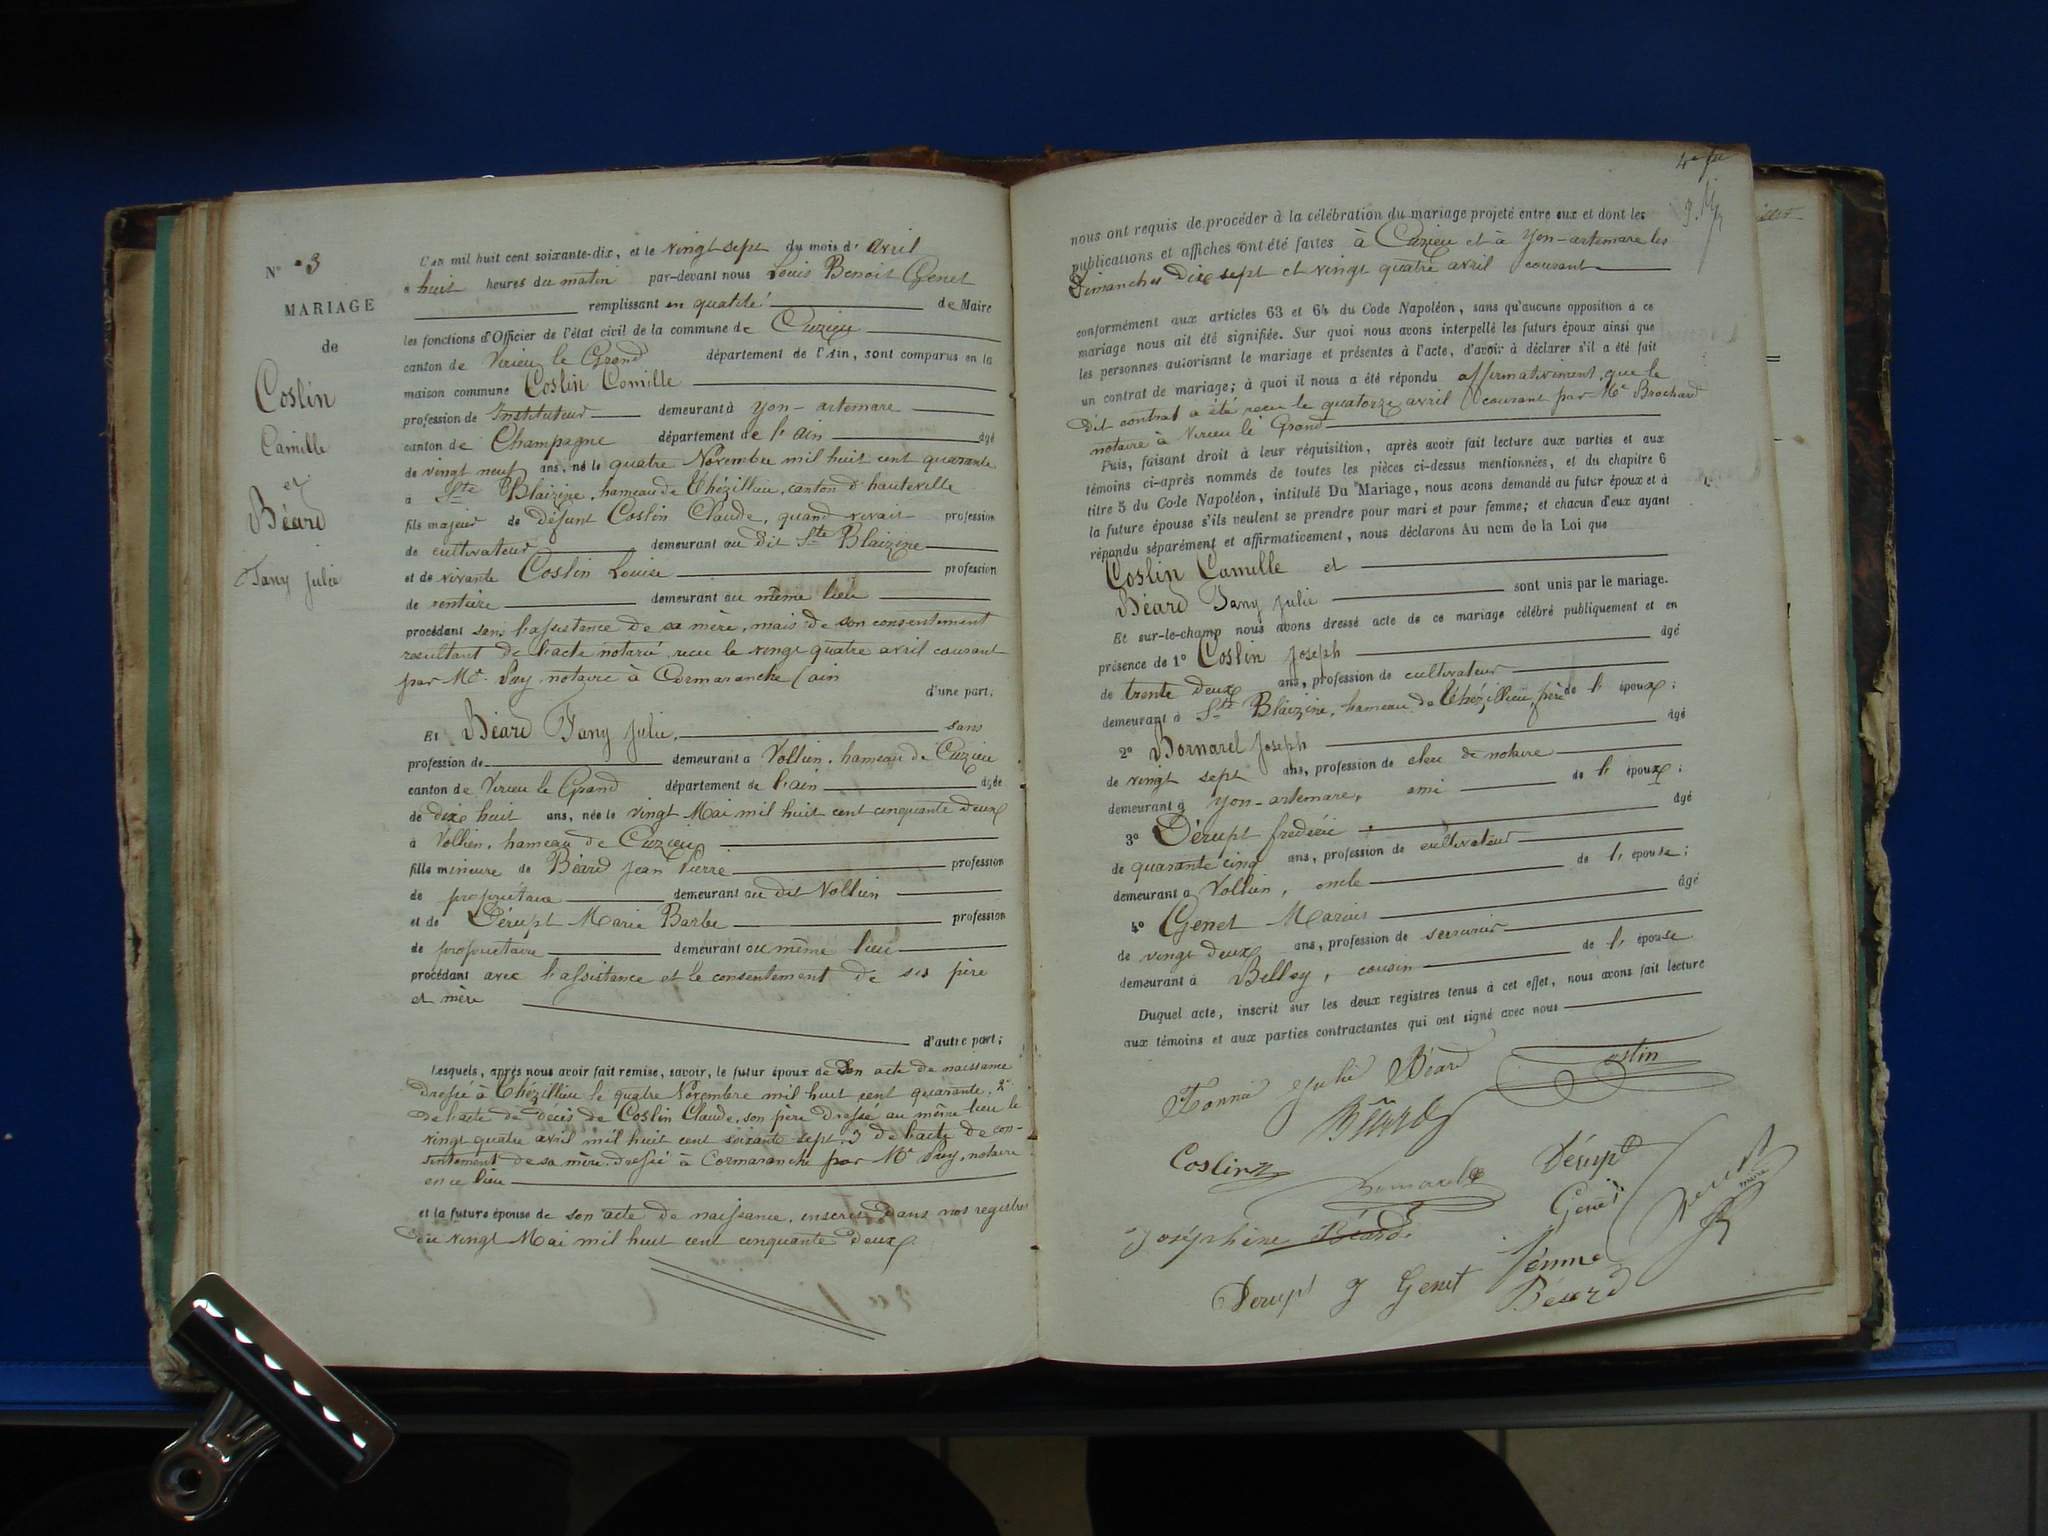 N° 3
MARIAGE
de
Coslin
Camille
et
Béard
Fany Julie
L'an mil huit cent soixante-dix, et le vingt sept du mois d'avril
à huit heures du matin par-devant nous Louis Benoit Genet
remplissant en qualité de Maire
les fonctions d'Officier de l'état civil de la commune de Cuzieu
canton de Virieu le Grand département de l'Ain, sont comparus en la
maison commune Coslin Camille
profession de Instituteur demeurant à Yon-artemare
canton de Champagne département de l'Ain âgé
de vingt neuf ans, né le quatre Novembre mil huit cent quarante
à Ste Blaizine, hameau de Thézillieu, canton d'hauteville
fils majeur de défunt Coslin Claude, quand vivait profession
de cultivateur demeurant au dit Ste Blaizine
et de vivante Coslin Louise profession
de rentière demeurant au même lieu
procédant sans l'assistance de sa mère, mais de son consentement
résultant de l'acte notarié reçu le vingt quatre avril courant
par Me Puy, notaire à Cormaranche (ain
d'une part;
Et Béard Fany Julie, sans
profession de demeurant à Vollien, hameau de Cuzieu
canton de Virieu le Grand département de l'ain âgée
de dix huit ans, née le vingt Mai mil huit cent cinquante deux
à Vollien, hameau de Cuzieu
fille mineure de Béard Jean Pierre profession
de propriétaire demeurant au dit Vollien
et de Dérupt Marie Barbe profession
de propriétaire demeurant au même lieu
procédant avec l'assistance et le consentement de ses père
et mère
d'autre part;
Lesquels, après nous avoir fait remise, savoir, le futur époux de son acte de naissance
dressé à Thézillieu le quatre Novembre mil huit cent quarante, 2°
de l'acte de décès de Coslin Claude, son père dressé au même lieu le
vingt quatre avril mil huit cent soixante sept, 3 de l'acte de con-
sentement de sa mère dressé à Cormaranche par Me Puy, notaire
en ce lieu
et la future épouse de son acte de naissance, inscrit dans nos registres
du vingt Mai mil huit cent cinquante deux.
nous ont requis de procéder à la célébration du mariage projeté entre eux et dont les
publications et affiches ont été faites à Cuzieu et à Yon-artemare les
Dimanches dix sept et vingt quatre avril courant
conformément aux articles 63 et 64 du Code Napoléon, sans qu'aucune opposition à ce
mariage nous ait été signifiée. Sur quoi nous avons interpellé les futurs époux ainsi que
les personnes autorisant le mariage et présentes à l'acte, d'avoir à déclarer s'il a été fait
un contrat de mariage; à quoi il nous a été répondu affirmativement, que le
dit contrat a été reçu le quatorze avril courant par Me Brochard
notaire à Virieu le Grand
Puis, faisant droit à leur réquisition, après avoir fait lecture aux parties et aux
témoins ci-après nommés de toutes les pièces ci-dessus mentionnées, et du chapitre 6
titre 5 du Code Napoléon, intitulé Du Mariage, nous avons demandé au futur époux et à
la future épouse s'ils veulent se prendre pour mari et pour femme; et chacun d'eux ayant
répondu séparément et affirmativement, nous déclarons Au nom de la Loi que
Coslin Camille et
Béard Fany Julie sont unis par le mariage.
Et sur-le-champ nous avons dressé acte de ce mariage célébré publiquement et en
présence de 1° Coslin Joseph âgé
de trente deux ans, profession de cultivateur
demeurant à Ste Blaizine, hameau de Thézillieu, frère de l'époux;
2° Bornarel Joseph âgé
de vingt sept ans, profession de clerc de notaire
demeurant à Yon-artemare, ami de l'époux;
3° Dérupt frédéric âgé
de quarante cinq ans, profession de cultivateur
demeurant à Vollien, oncle de l'épouse;
4° Genet Marius âgé
de vingt deux ans, profession de serrurier
demeurant à Belley, cousin de l'épouse
Duquel acte, inscrit sur les deux registres tenus à cet effet, nous avons fait lecture
aux témoins et aux parties contractantes qui ont signé avec nous
Julie Béard Coslin
Béard
Coslin Bornarel Dérupt
Genet
Joséphine Béard
Derupt J Genet femme
Béard
maire